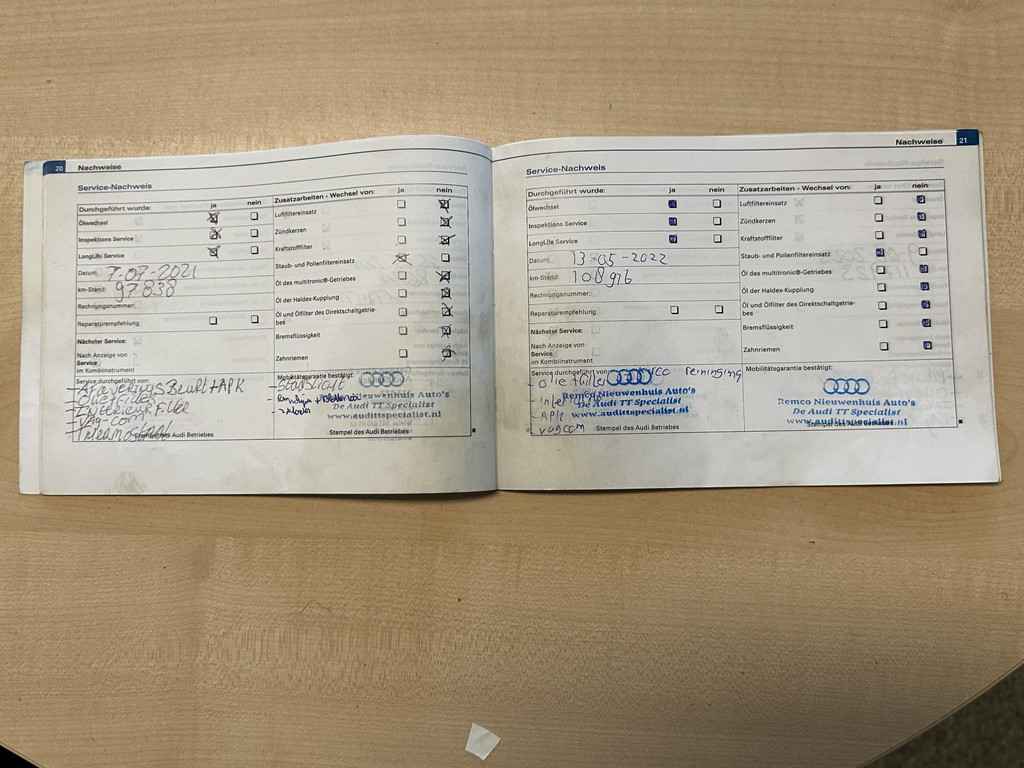 20 Nachweise
Service-Nachweis
Durchgeführt wurde: ja nein
Ölwechsel
Inspektions Service
LongLife Service
Datum: 7-07-2021
km-Stand: 97838
Rechnungsnummer:
Reparaturempfehlung
Nächster Service:
Nach Anzeige von
Service
im Kombiinstrument
Service durchgeführt von:
Zusatzarbeiten - Wechsel von: ja nein
Luftfiltereinsatz
Zündkerzen
Kraftstofffilter
Staub- und Pollenfiltereinsatz
Öl des multitronic®-Getriebes
Öl der Haldex-Kupplung
Öl und Ölfilter des Direktschaltgetrie-
bes
Bremsflüssigkeit
Zahnriemen
Mobilitätsgarantie bestätigt:
Remco Nieuwenhuis Auto's
De Audi TT Specialist
www.audittspecialist.nl
Stempel des Audi Betriebes
Nachweise 21
Service-Nachweis
Durchgeführt wurde: ja nein
Ölwechsel
Inspektions Service
LongLife Service
Datum: 13-05-2022
km-Stand: 108976
Rechnungsnummer:
Reparaturempfehlung
Nächster Service:
Nach Anzeige von
Service
im Kombiinstrument
Service durchgeführt von:
- oliefilter
- APK
- vagcom
Remco Nieuwenhuis Auto's
De Audi TT Specialist
www.audittspecialist.nl
Stempel des Audi Betriebes
Zusatzarbeiten - Wechsel von: ja nein
Luftfiltereinsatz
Zündkerzen
Kraftstofffilter
Staub- und Pollenfiltereinsatz
Öl des multitronic®-Getriebes
Öl der Haldex-Kupplung
Öl und Ölfilter des Direktschaltgetrie-
bes
Bremsflüssigkeit
Zahnriemen
Mobilitätsgarantie bestätigt:
Remco Nieuwenhuis Auto's
De Audi TT Specialist
www.audittspecialist.nl